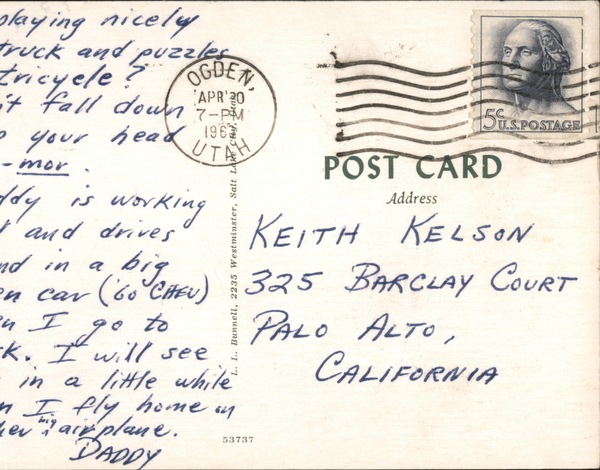 playing nicely
truck and puzzles
tricycle?
't fall down
your head
-mor.
ddy is working
and drives
nd in a big
en car ('60 CHEV)
n I go to
k. I will see
in a little while
n I fly home on
her big airplane.
DADDY
OGDEN,
APR 30
7-PM
196
UTAH
5¢ U.S. POSTAGE
L. L. Bunnell, 2235 Westminster, Salt Lake City, Utah
POST CARD
Address
KEITH KELSON
325 BARCLAY COURT
PALO ALTO,
CALIFORNIA
53737